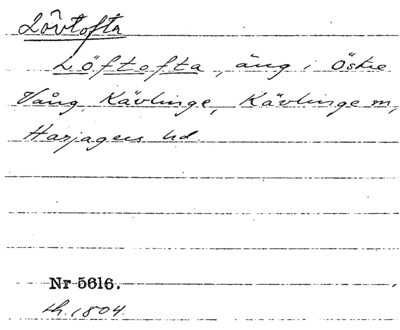 Lövtofta
Löftofta, äng i Östre
Vång, Kävlinge, Kävlinge m,
Harjagers hd.
Nr 5616.
Lh. 1804.